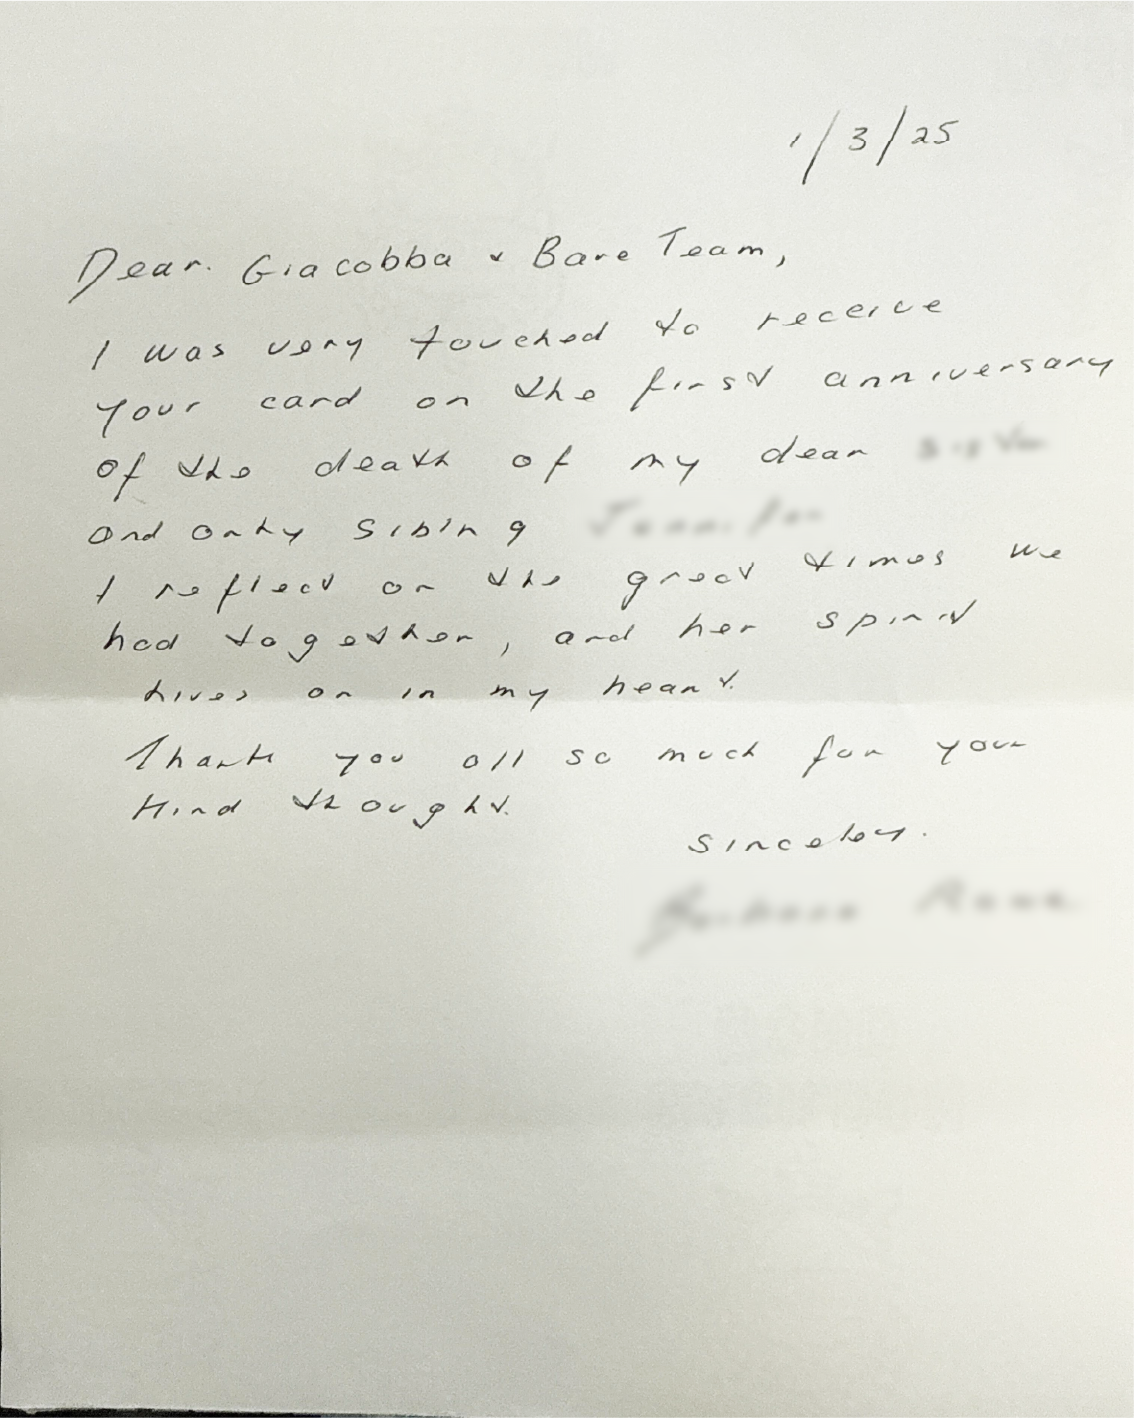 1/3/25
Dear Giacobba & Bare Team,
I was very touched to receive
your card on the first anniversary
of the death of my dear
and only sibling
I reflect on the great times we
had together, and her spirit
lives on in my heart.
Thank you all so much for your
kind thought.
Sinceley.